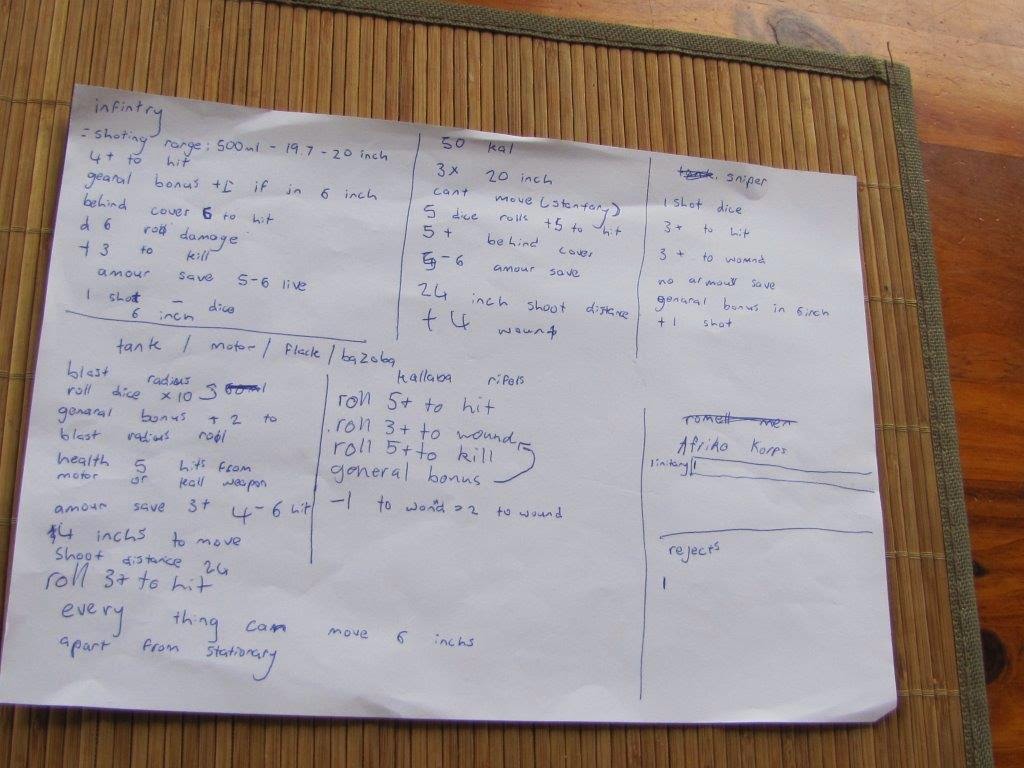 infintry
- shoting range: 500ml - 19.7 - 20 inch
4+ to hit
gearal bonus +1 if in 6 inch
behind cover 6 to hit
d 6 roll damage
+ 3 to kill
amour save 5-6 live
1 shot - dice
6 inch
50 kal
3x 20 inch
cant move (stantary)
5 dice rolls +5 to hit
5+ behind cover
5-6 amour save
24 inch shoot distance
+ 4 wound
sniper
1 shot dice
3+ to hit
3+ to wound
no armour save
genaral bonus in 6 inch
+1 shot
tank / motor / flack / bazoba
blast radius
roll dice x10
general bonus + 2 to
blast radius roll
health 5 hits from
motor or kall weapon
amour save 3+ 4-6 hit
4 inchs to move
shoot distance 24
roll 3+ to hit
every thing can move 6 inchs
apart from stationary
kallaba rifels
roll 5+ to hit
roll 3+ to wound
roll 5+ to kill
goneral bonus
-1 to wond = 2 to wound
romell men
Afriko Korps
1
rejects
1